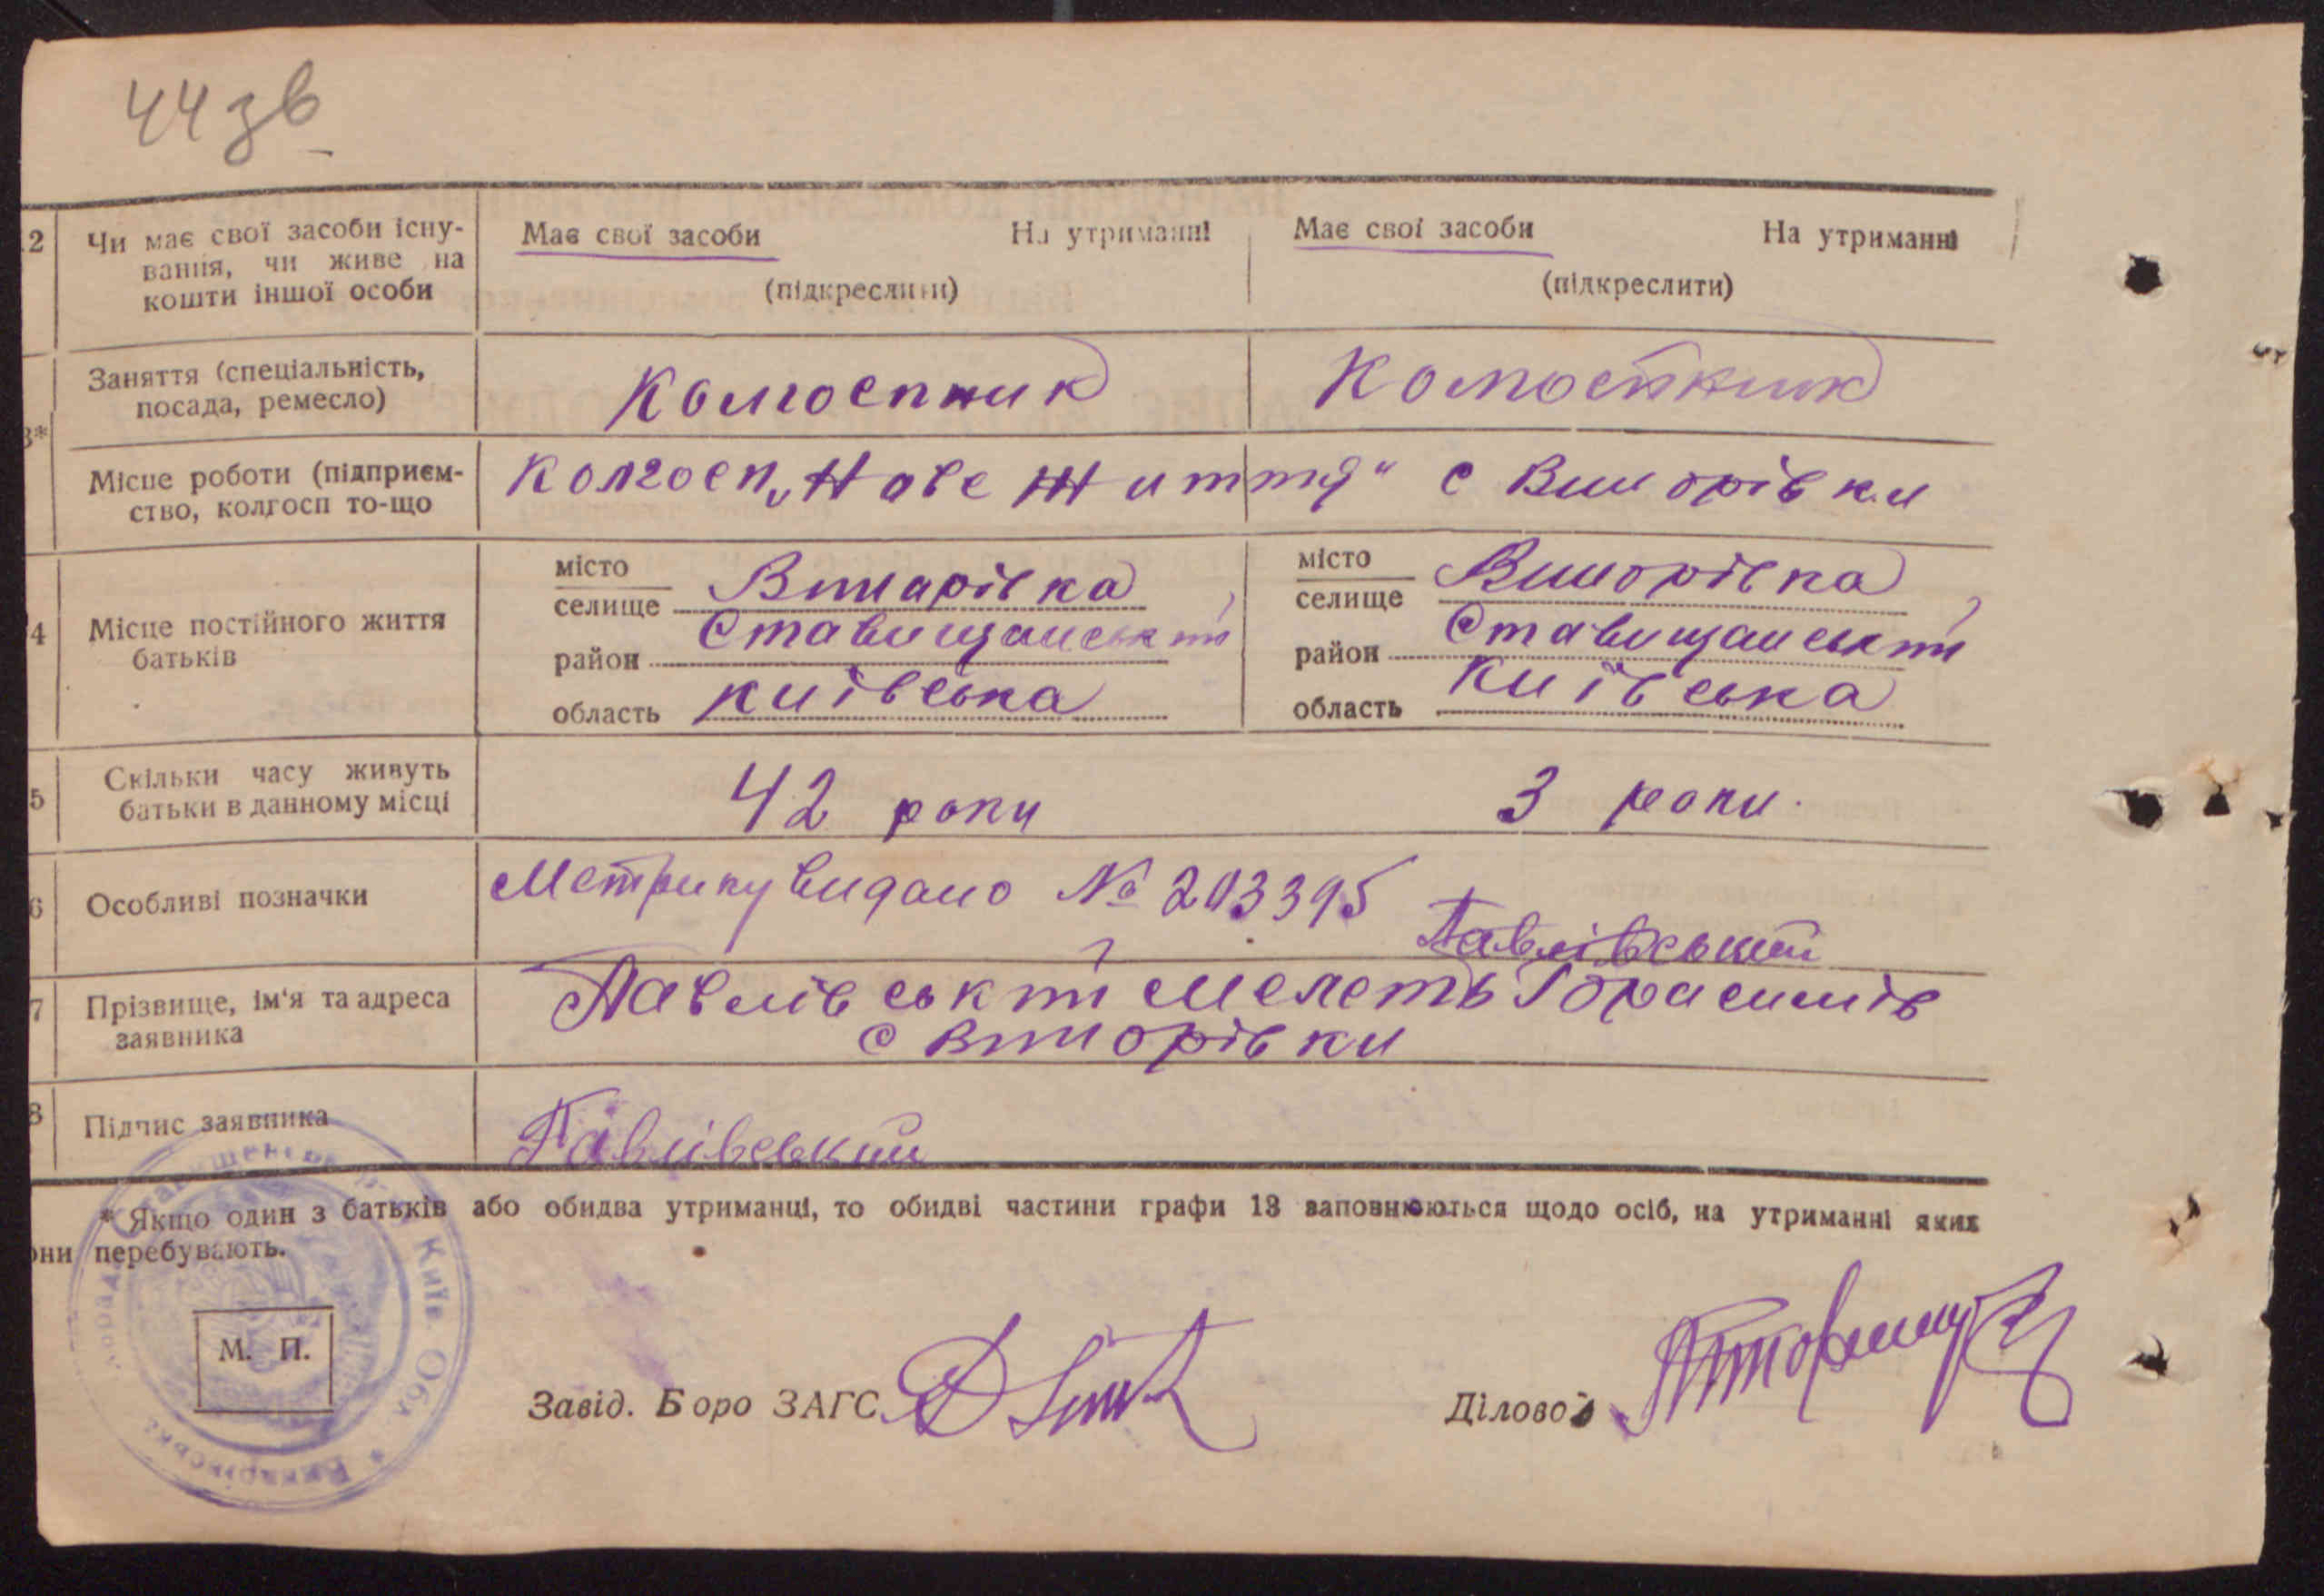 44 зв
12 Чи має свої засоби існу-
вання, чи живе на
кошти іншої особи
Має свої засоби На утриманні
(підкреслити)
Має свої засоби На утриманні
(підкреслити)
3*
Заняття (спеціальність,
посада, ремесло)
Колгоспник
Колгоспник
Місце роботи (підприєм-
ство, колгосп то-що
Колгосп „Нове Життя" с Винорівки
4 Місце постійного життя
батьків
місто
селище Винарівка
район Ставищанський
область Київська
місто
селище Винорівка
район Ставищанський
область Київська
5 Скільки часу живуть
батьки в данному місці
42 роки
3 роки.
6 Особливі позначки
Метрику видано № 203395
Павлівський
7 Прізвище, ім'я та адреса
заявника
Павлівський Мелеть Горасимів
с Винорівки
8 Підпис заявника
Павлівський
* Якщо один з батьків або обидва утриманці, то обидві частини графи 13 заповнюються щодо осіб, на утриманні яких
они перебувають.
М. П.
Київ. Обл.
Завід. Боро ЗАГС
Діловод